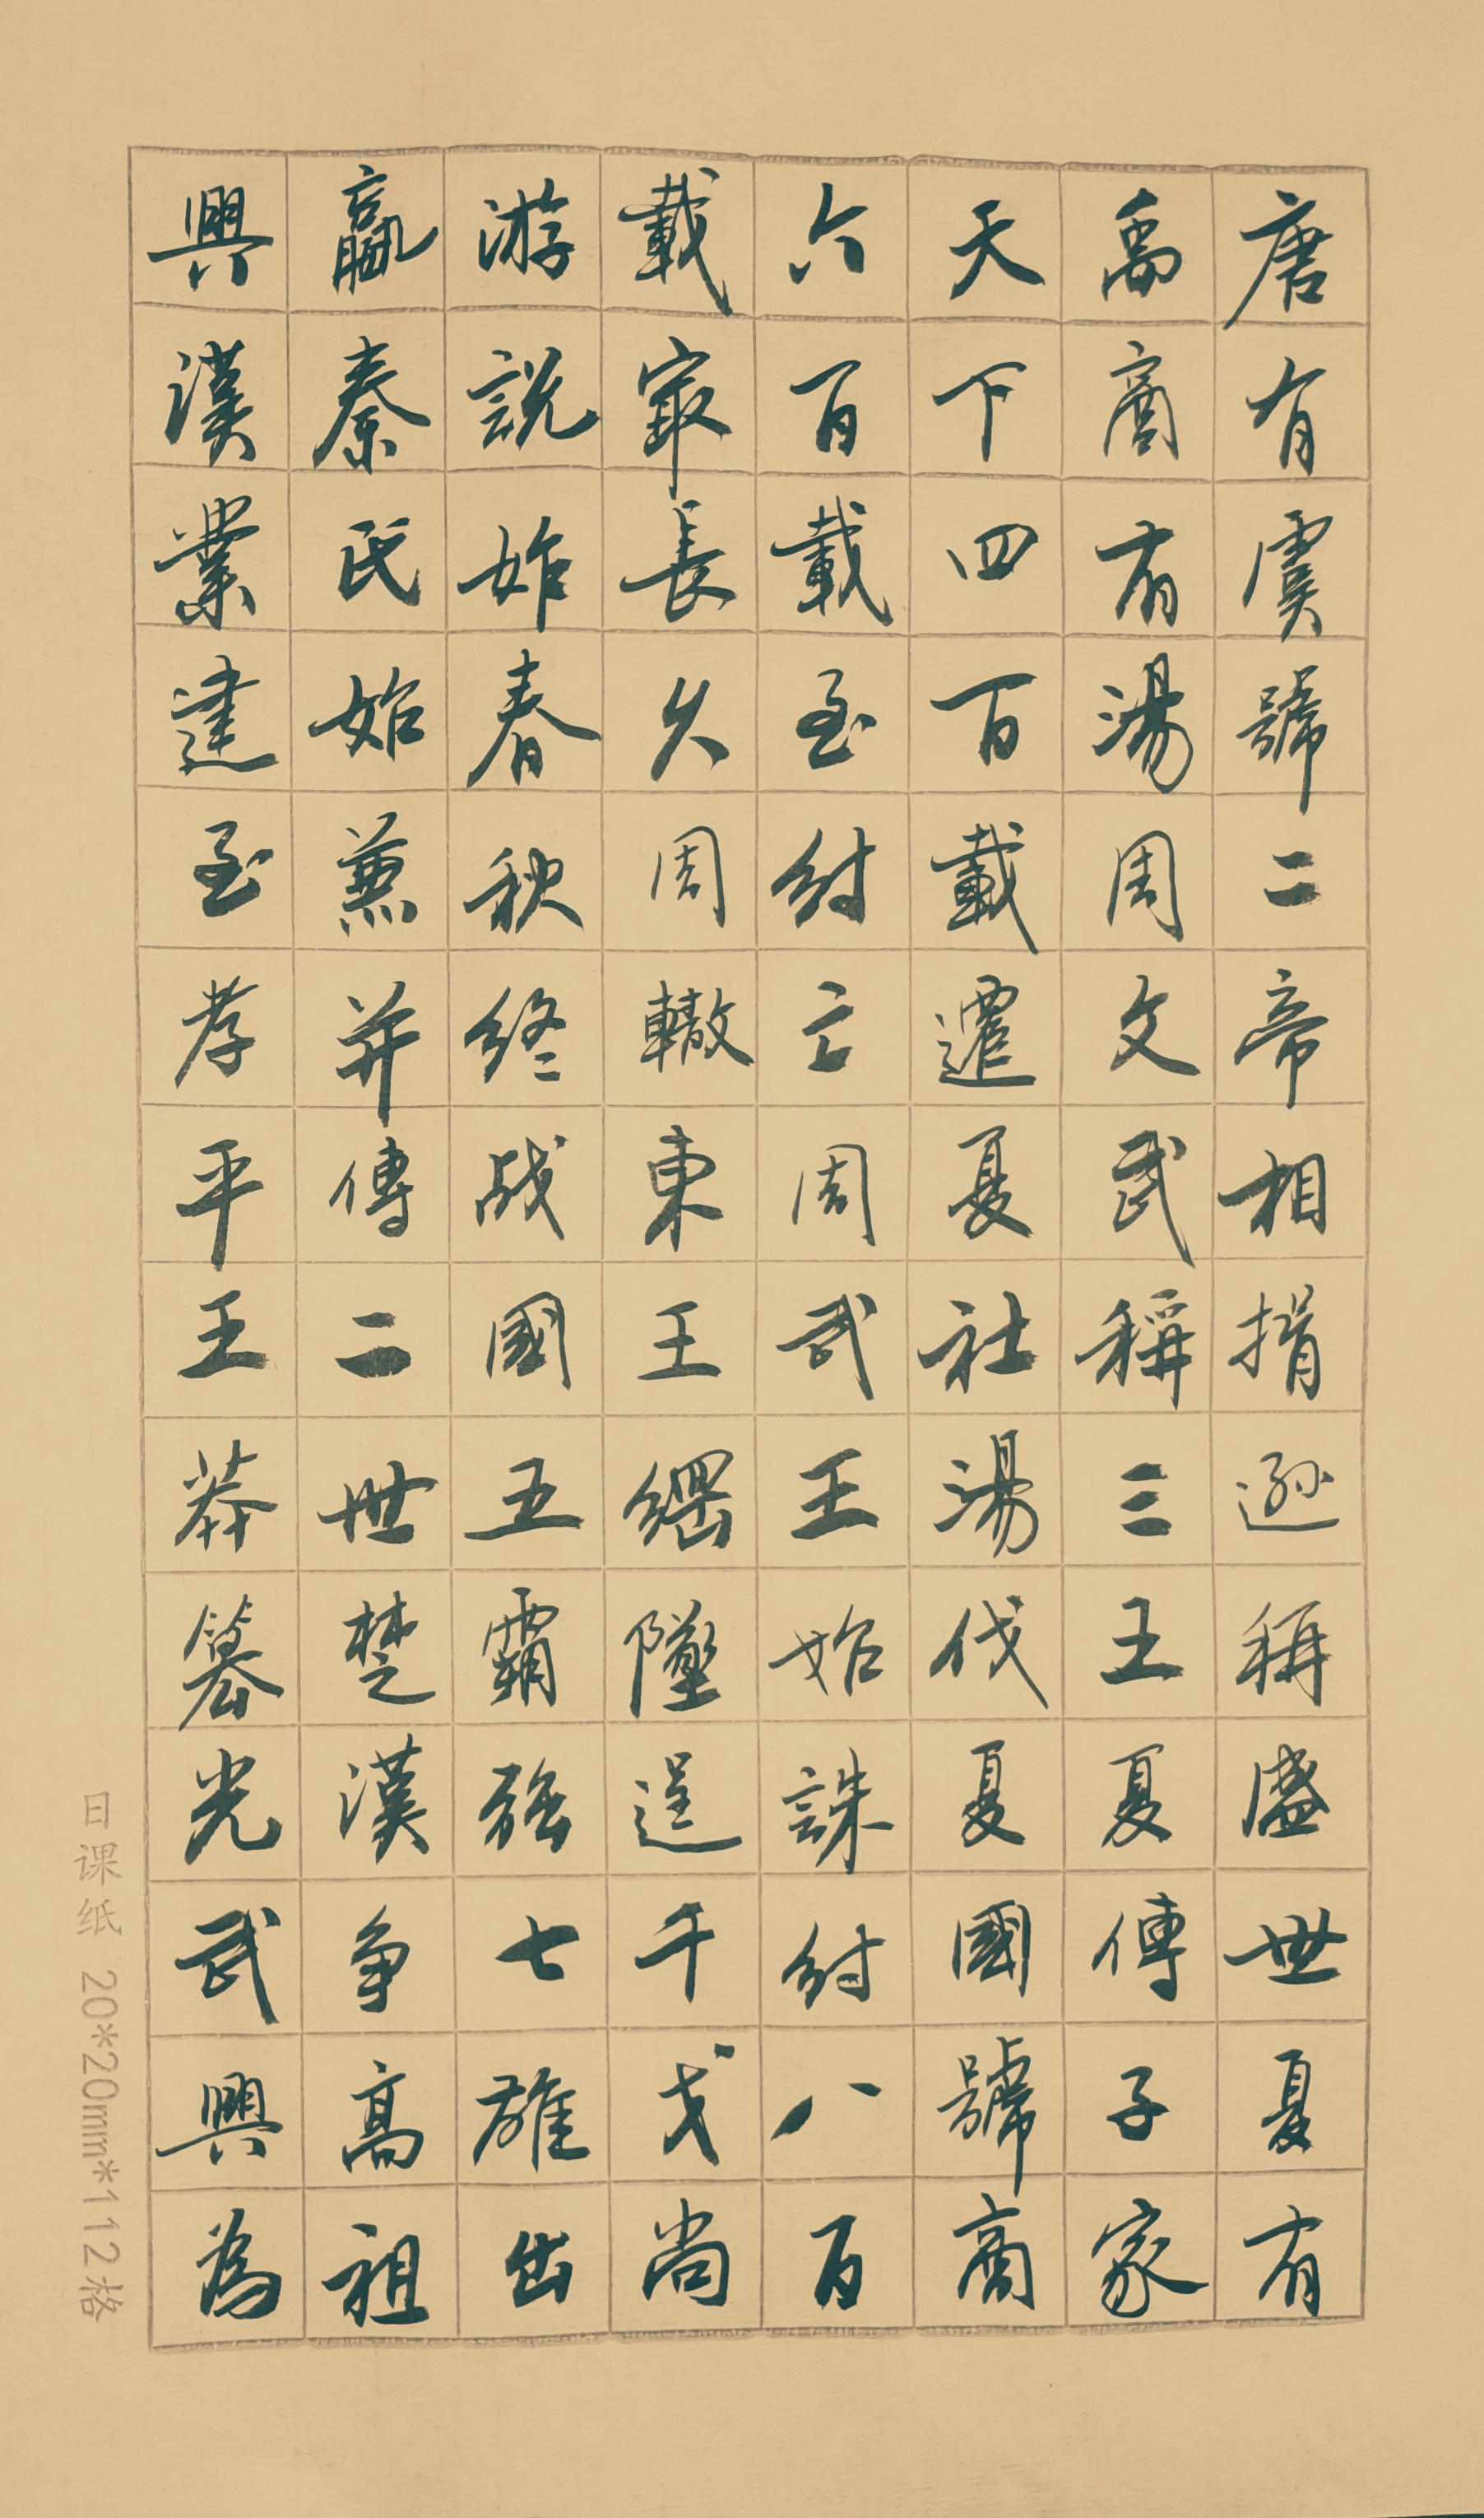 唐有虞號二帝相揖遜稱盛世夏有
禹商有湯周文武稱三王夏傳子家
天下四百載遷夏社湯伐夏國號商
六百載至紂亡周武王始誅紂八百
載最長久周轍東王綱墜逞干戈尚
游說始春秋終戰國五霸強七雄出
嬴秦氏始兼并傳二世楚漢爭高祖
興漢業建至孝平王莽篡光武興為
日课纸 20*20mm*112格